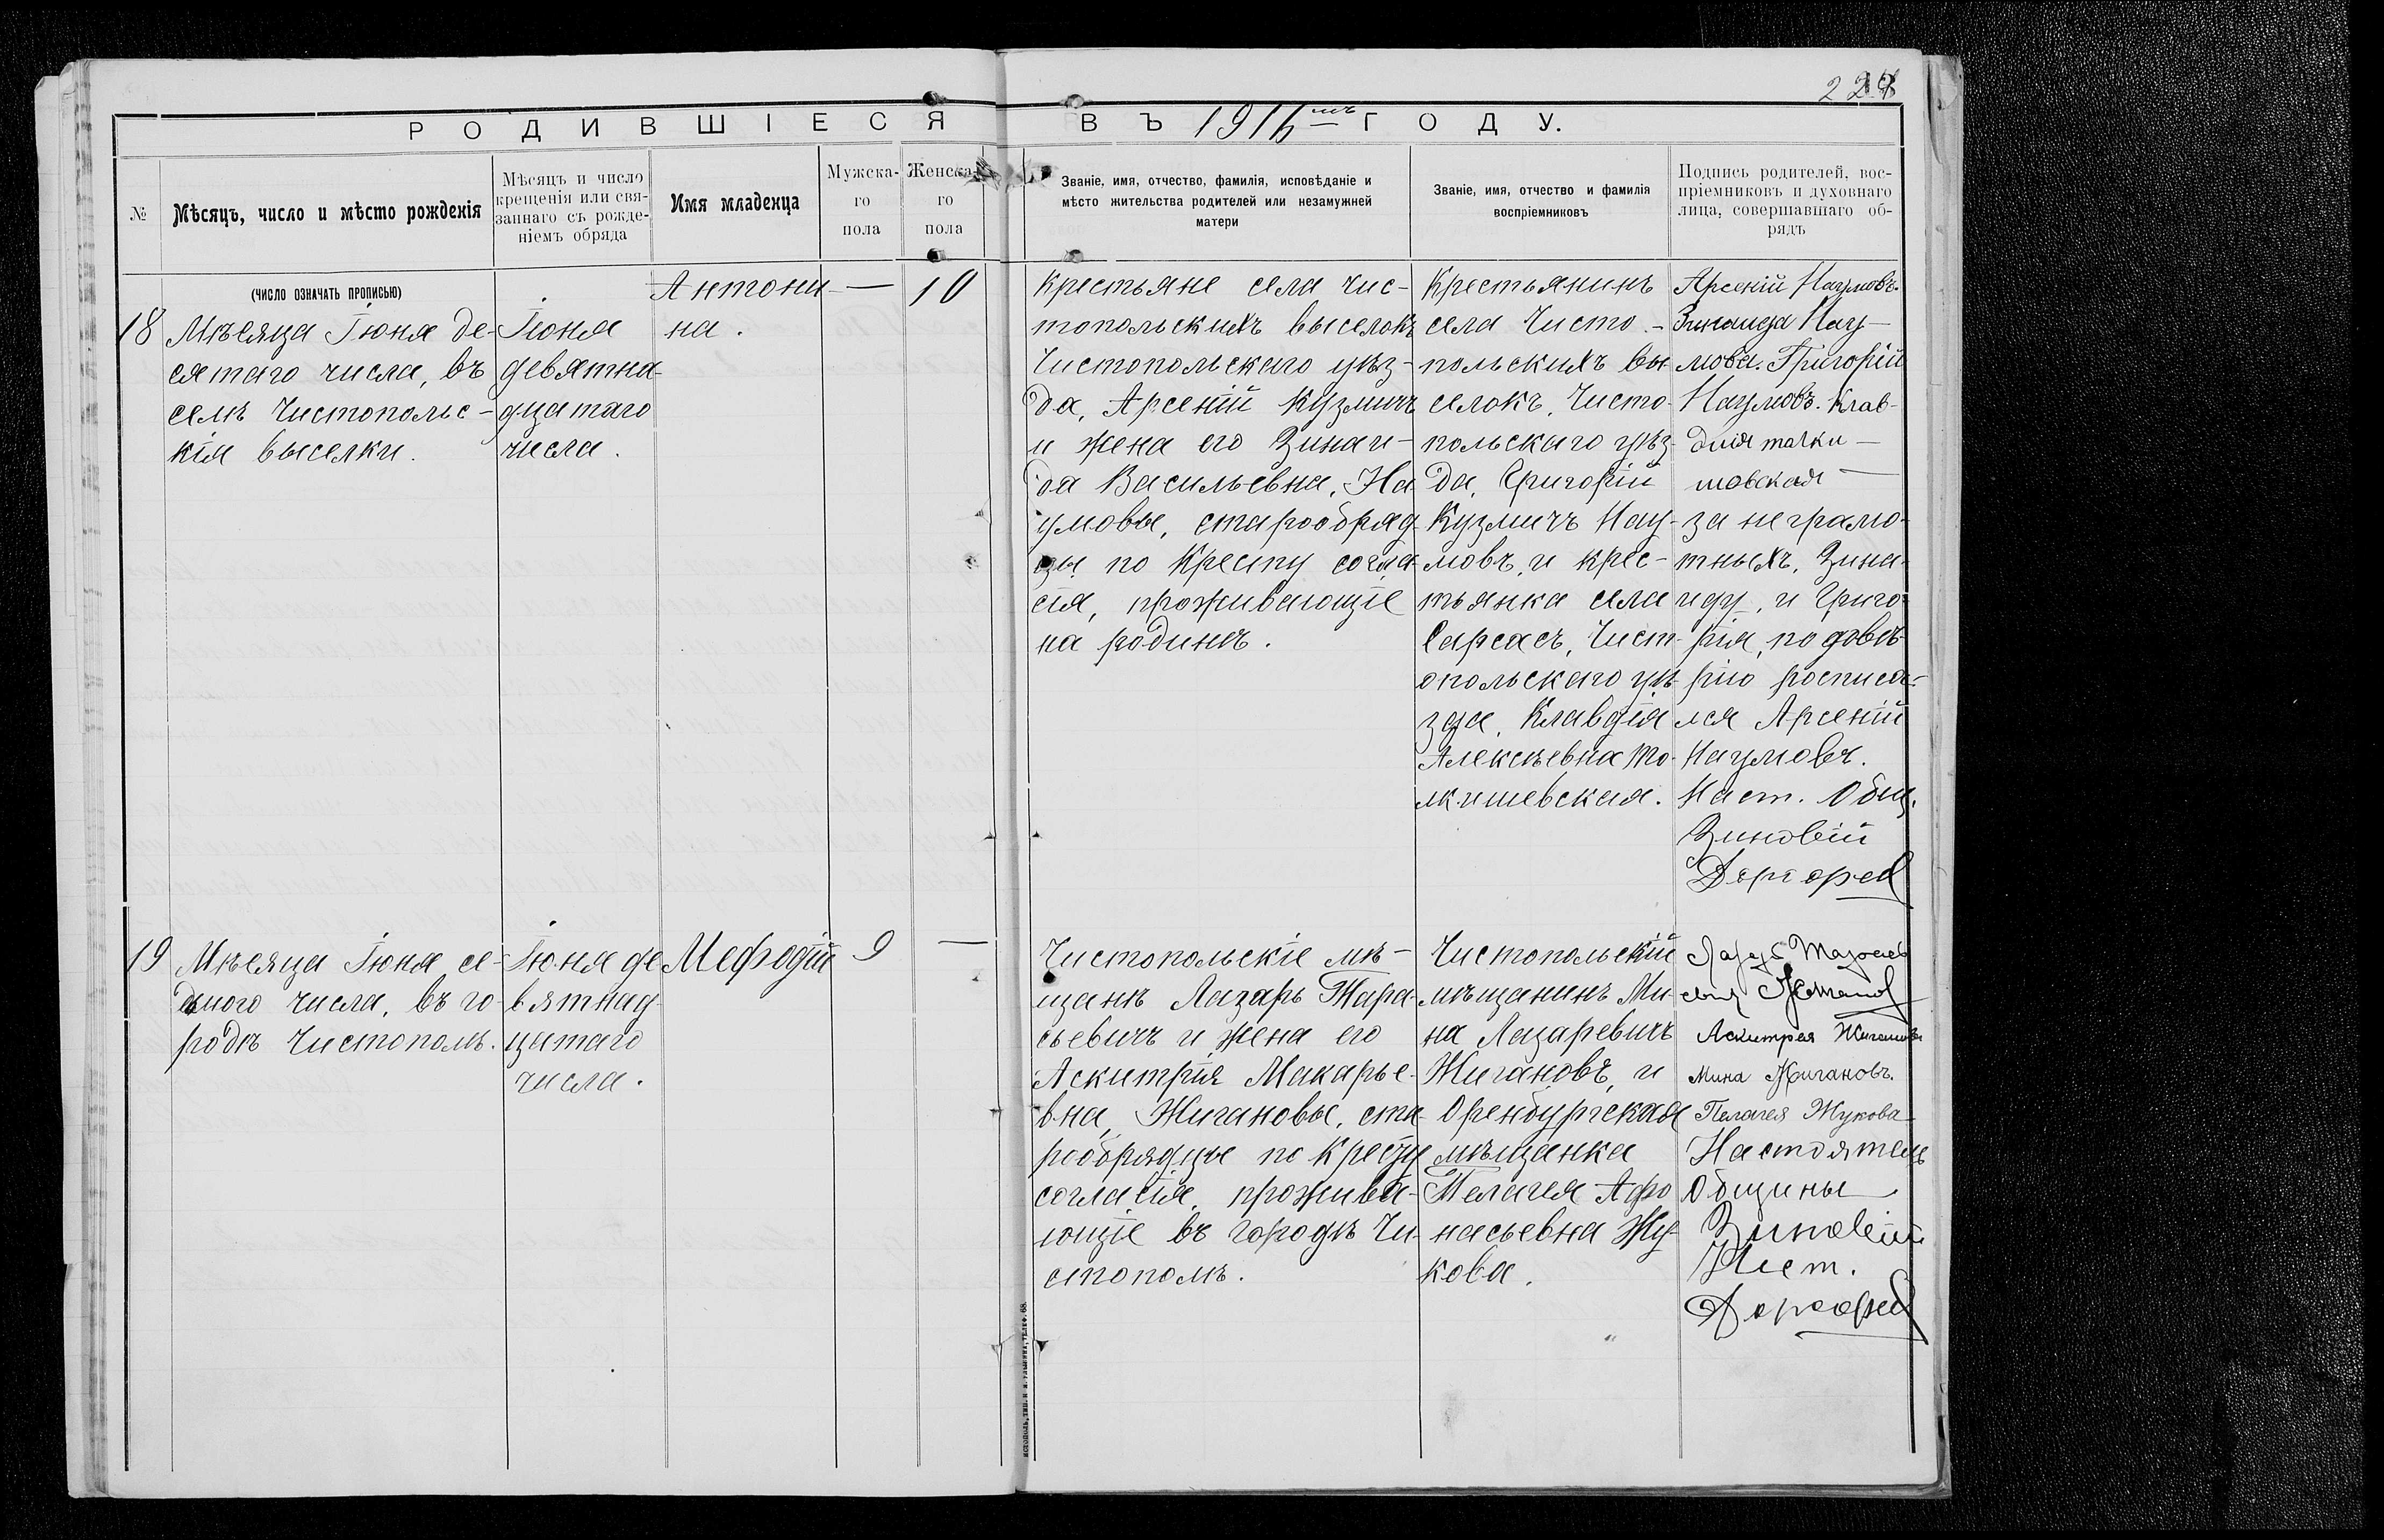 РОДИВШІЕСЯ ВЪ 1916мъ ГОДУ.
№
Мѣсяцъ, число и мѣсто рожденія
Мѣсяцъ и число
крещенія или свя-
заннаго съ рожде-
ніемъ обряда
Имя младенца
Мужска-
го
пола
Женска-
го
пола
Званіе, имя, отчество, фамилія, исповѣданіе и
мѣсто жительства родителей или незамужней
матери
Званіе, имя, отчество и фамилія
воспріемниковъ
Подпись родителей, вос-
пріемниковъ и духовнаго
лица, совершавшаго об-
рядъ
(ЧИСЛО ОЗНАЧАТЬ ПРОПИСЬЮ)
18
Мѣсяца Іюня де-
сятаго числа, въ
селѣ Чистопольс-
кія выселки.
Іюня
девятна-
дцатаго
числа.
Антони-
на.
—
10
Крестьяне села Чис-
топольскихъ выселокъ
Чистопольскаго уѣз-
да, Арсеній Кузмичъ
и жена его Зинаи-
да Васильевна, На-
умовы, старообряд-
цы по Кресту согла-
сія, проживающіе
на родинѣ.
Крестьянинъ
села Чисто-
польскихъ вы-
селокъ, Чисто-
польскаго уѣз-
да, Григорій
Кузмичъ Нау-
мовъ, и крес-
тьянка села
Сарсасъ, Чист-
опольскаго уѣ-
зда, Клавдія
Алексѣевна То-
лкишевская.
Арсеній Наумовъ.
Зинаида Нау-
мова. Григорій
Наумовъ. Клав-
дия талки-
шовская
за неграмо-
тныхъ, Зина-
иду, и Григо-
рія, по довѣ-
рію росписа-
лся Арсеній
Наумовъ.
Наст. Общ.
Зиновій
19
Мѣсяца Іюня се-
дьмого числа, въ го-
родѣ Чистополѣ.
Іюня де-
вятнад-
цатаго
числа.
Мефодій
9
—
Чистопольскіе мѣ-
щанѣ Лазарь Тара-
сьевичъ и жена его
Аскитрія Макарье-
вна, Жигановы, ста-
робрядцы по Кресту
согласія, прожива-
ющіе въ городѣ Чи-
стополѣ.
Чистопольскій
мѣщанинъ Ми-
на Лазаревичъ
Жигановъ, и
Оренбургская
мѣщанка
Пелагея Афо
насьевна Жу-
кова.
Аскитрея Жиганова
Мина Жигановъ.
Пелагея Жукова
Настоятель
Общины
Зиновій